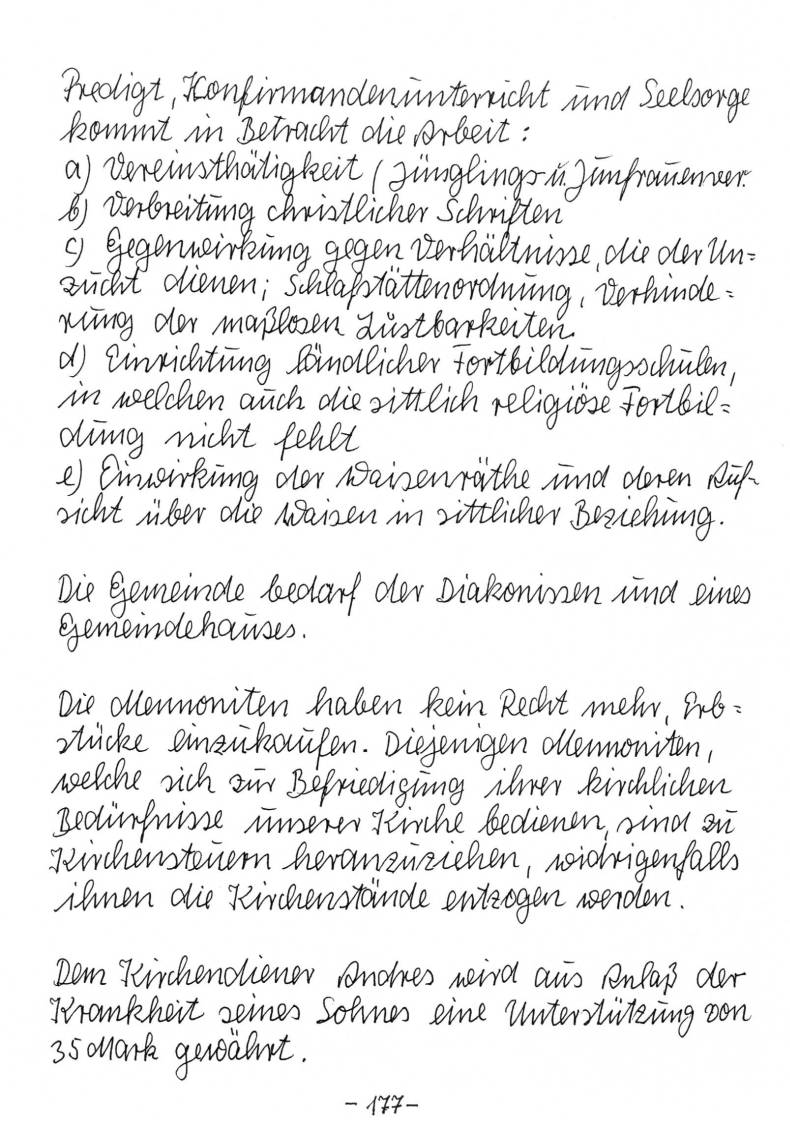 Predigt, Konfirmandenunterricht und Seelsorge
kommt in Betracht die Arbeit:
a) Vereinsthätigkeit (Jünglings- u. Junfrauenver.
b) Verbreitung christlicher Schriften
c) Gegenwirkung gegen Verhältnisse, die der Un=
zucht dienen; Schlafstättenordnung, Verhinde=
rung der maßlosen Lustbarkeiten.
d) Einrichtung ländlicher Fortbildungsschulen,
in welchen auch die sittlich religiöse Fortbil=
dung nicht fehlt
e) Einwirkung der Waisenräthe und deren Auf-
sicht über die Waisen in sittlicher Beziehung.
Die Gemeinde bedarf der Diakonissen und eines
Gemeindehauses.
Die Mennoniten haben kein Recht mehr, Erb=
stücke einzukaufen. Diejenigen Mennoniten,
welche sich zur Befriedigung ihrer kirchlichen
Bedürfnisse unserer Kirche bedienen, sind zu
Kirchensteuern heranzuziehen, widrigenfalls
ihnen die Kirchenstände entzogen werden.
Dem Kirchendiener Andres wird aus Anlaß der
Krankheit seines Sohnes eine Unterstützung von
35 Mark gewährt.
- 177 -